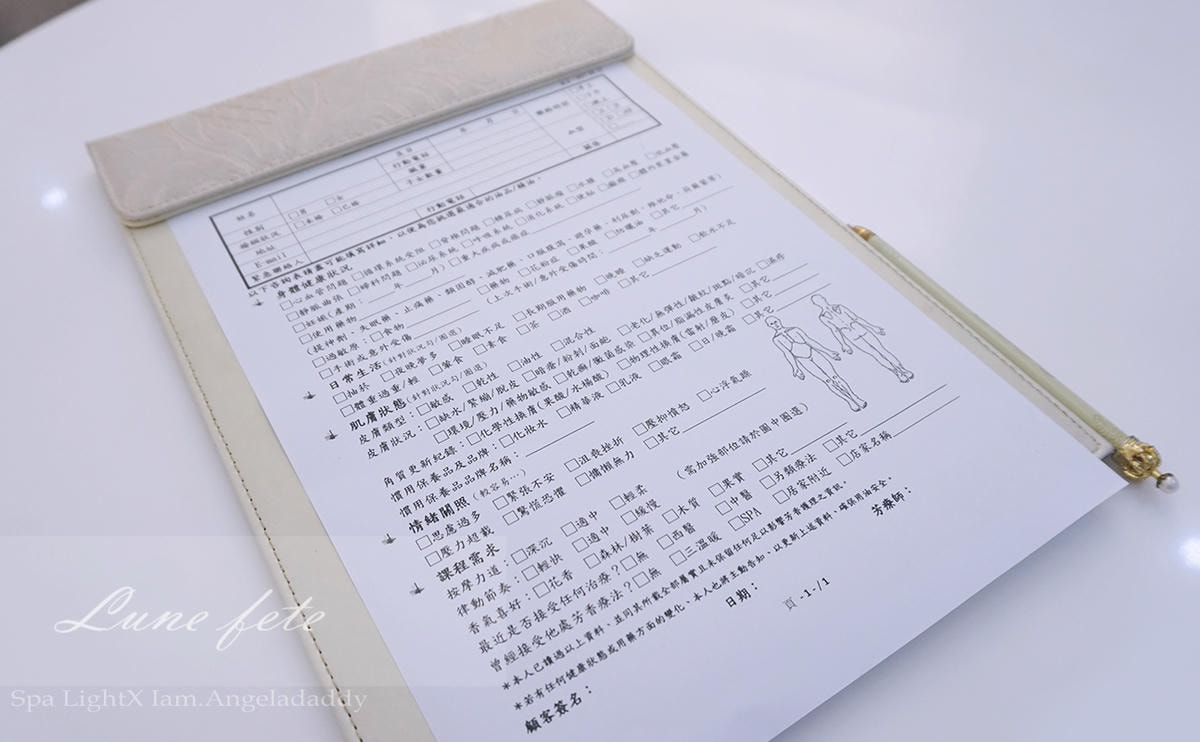 生日 年 月 日
姓名 行動電話
性別 □男 □女 職業 血型
婚姻狀況 □未婚 □已婚 子女數量
地址
E-mail
緊急聯絡人 行動電話
以下咨詢表請盡可能填寫詳細，以便為您挑選最適合的油品/精油。
身體健康狀況
□心血管問題 □循環系統受阻 □脊椎問題 □糖尿病 □靜脈瘤 □水腫 □高血壓 □低血壓
□靜脈曲張 □婦科問題 □泌尿系統 □呼吸系統 □消化系統 □便祕
□妊娠(產期：＿年＿月) □重大疾病或癌症
□使用藥物
(提神劑、失眠藥、止痛藥、類固醇、減肥藥、口服避孕藥
□過敏原：□食物 □藥物 □花粉症 □果酸 □防曬油 □其它
□手術或意外受傷 (上次手術/意外受傷時間：＿年＿月)
日常生活(針對狀況勾/圈選)
□抽菸 □夜晚夢多 □睡眠不足 □長期服用藥物 □晚睡 □缺乏運動 □飲水不足
□體重過重/輕 □葷食 □素食 □茶 □酒 □咖啡 □其它
肌膚狀態(針對狀況勾/圈選)
皮膚類型：□敏感 □乾性 □油性 □混合性
皮膚狀況：□缺水/緊繃/脫皮 □暗瘡/粉刺/面皰 □老化/無彈性/皺紋/斑點/暗沉
□環境/壓力/藥物敏感 □乾癬/黴菌感染 □其它
角質更新紀錄：□化學性換膚(果酸/水楊酸) □物理性換膚(雷射/磨皮) □其它
慣用保養品及品牌：□化妝水 □精華液 □乳液 □眼霜 □日/晚霜
慣用保養品品牌名稱：
情緒關照(較容易…)
□思慮過多 □緊張不安 □沮喪挫折 □壓抑憤怒 □心浮氣躁
□壓力超載 □驚慌恐懼 □慵懶無力 □其它
課程需求 (需加強部位請於圖中圈選)
按摩力道：□深沉 □適中 □輕柔
律動節奏：□輕快 □適中 □緩慢
香氣喜好：□花香 □森林/樹葉 □木質 □果實 □其它
最近是否接受任何治療？□無 □西醫 □中醫 □另類療法 □其它
曾經接受他處芳香療法？□無 □三溫暖 □SPA □居家附近 □店家名稱
*本人已讀過以上資料，並同其所載全部屬實且未保留任何足以影響芳香護理之資訊。
*若有任何健康狀態或用藥方面的變化，本人也將主動告知，以更新上述資料，確保用油安全。
顧客簽名： 日期： 芳療師：
頁 -1-/1
Lune fete
Spa LightX Iam.Angeladaddy